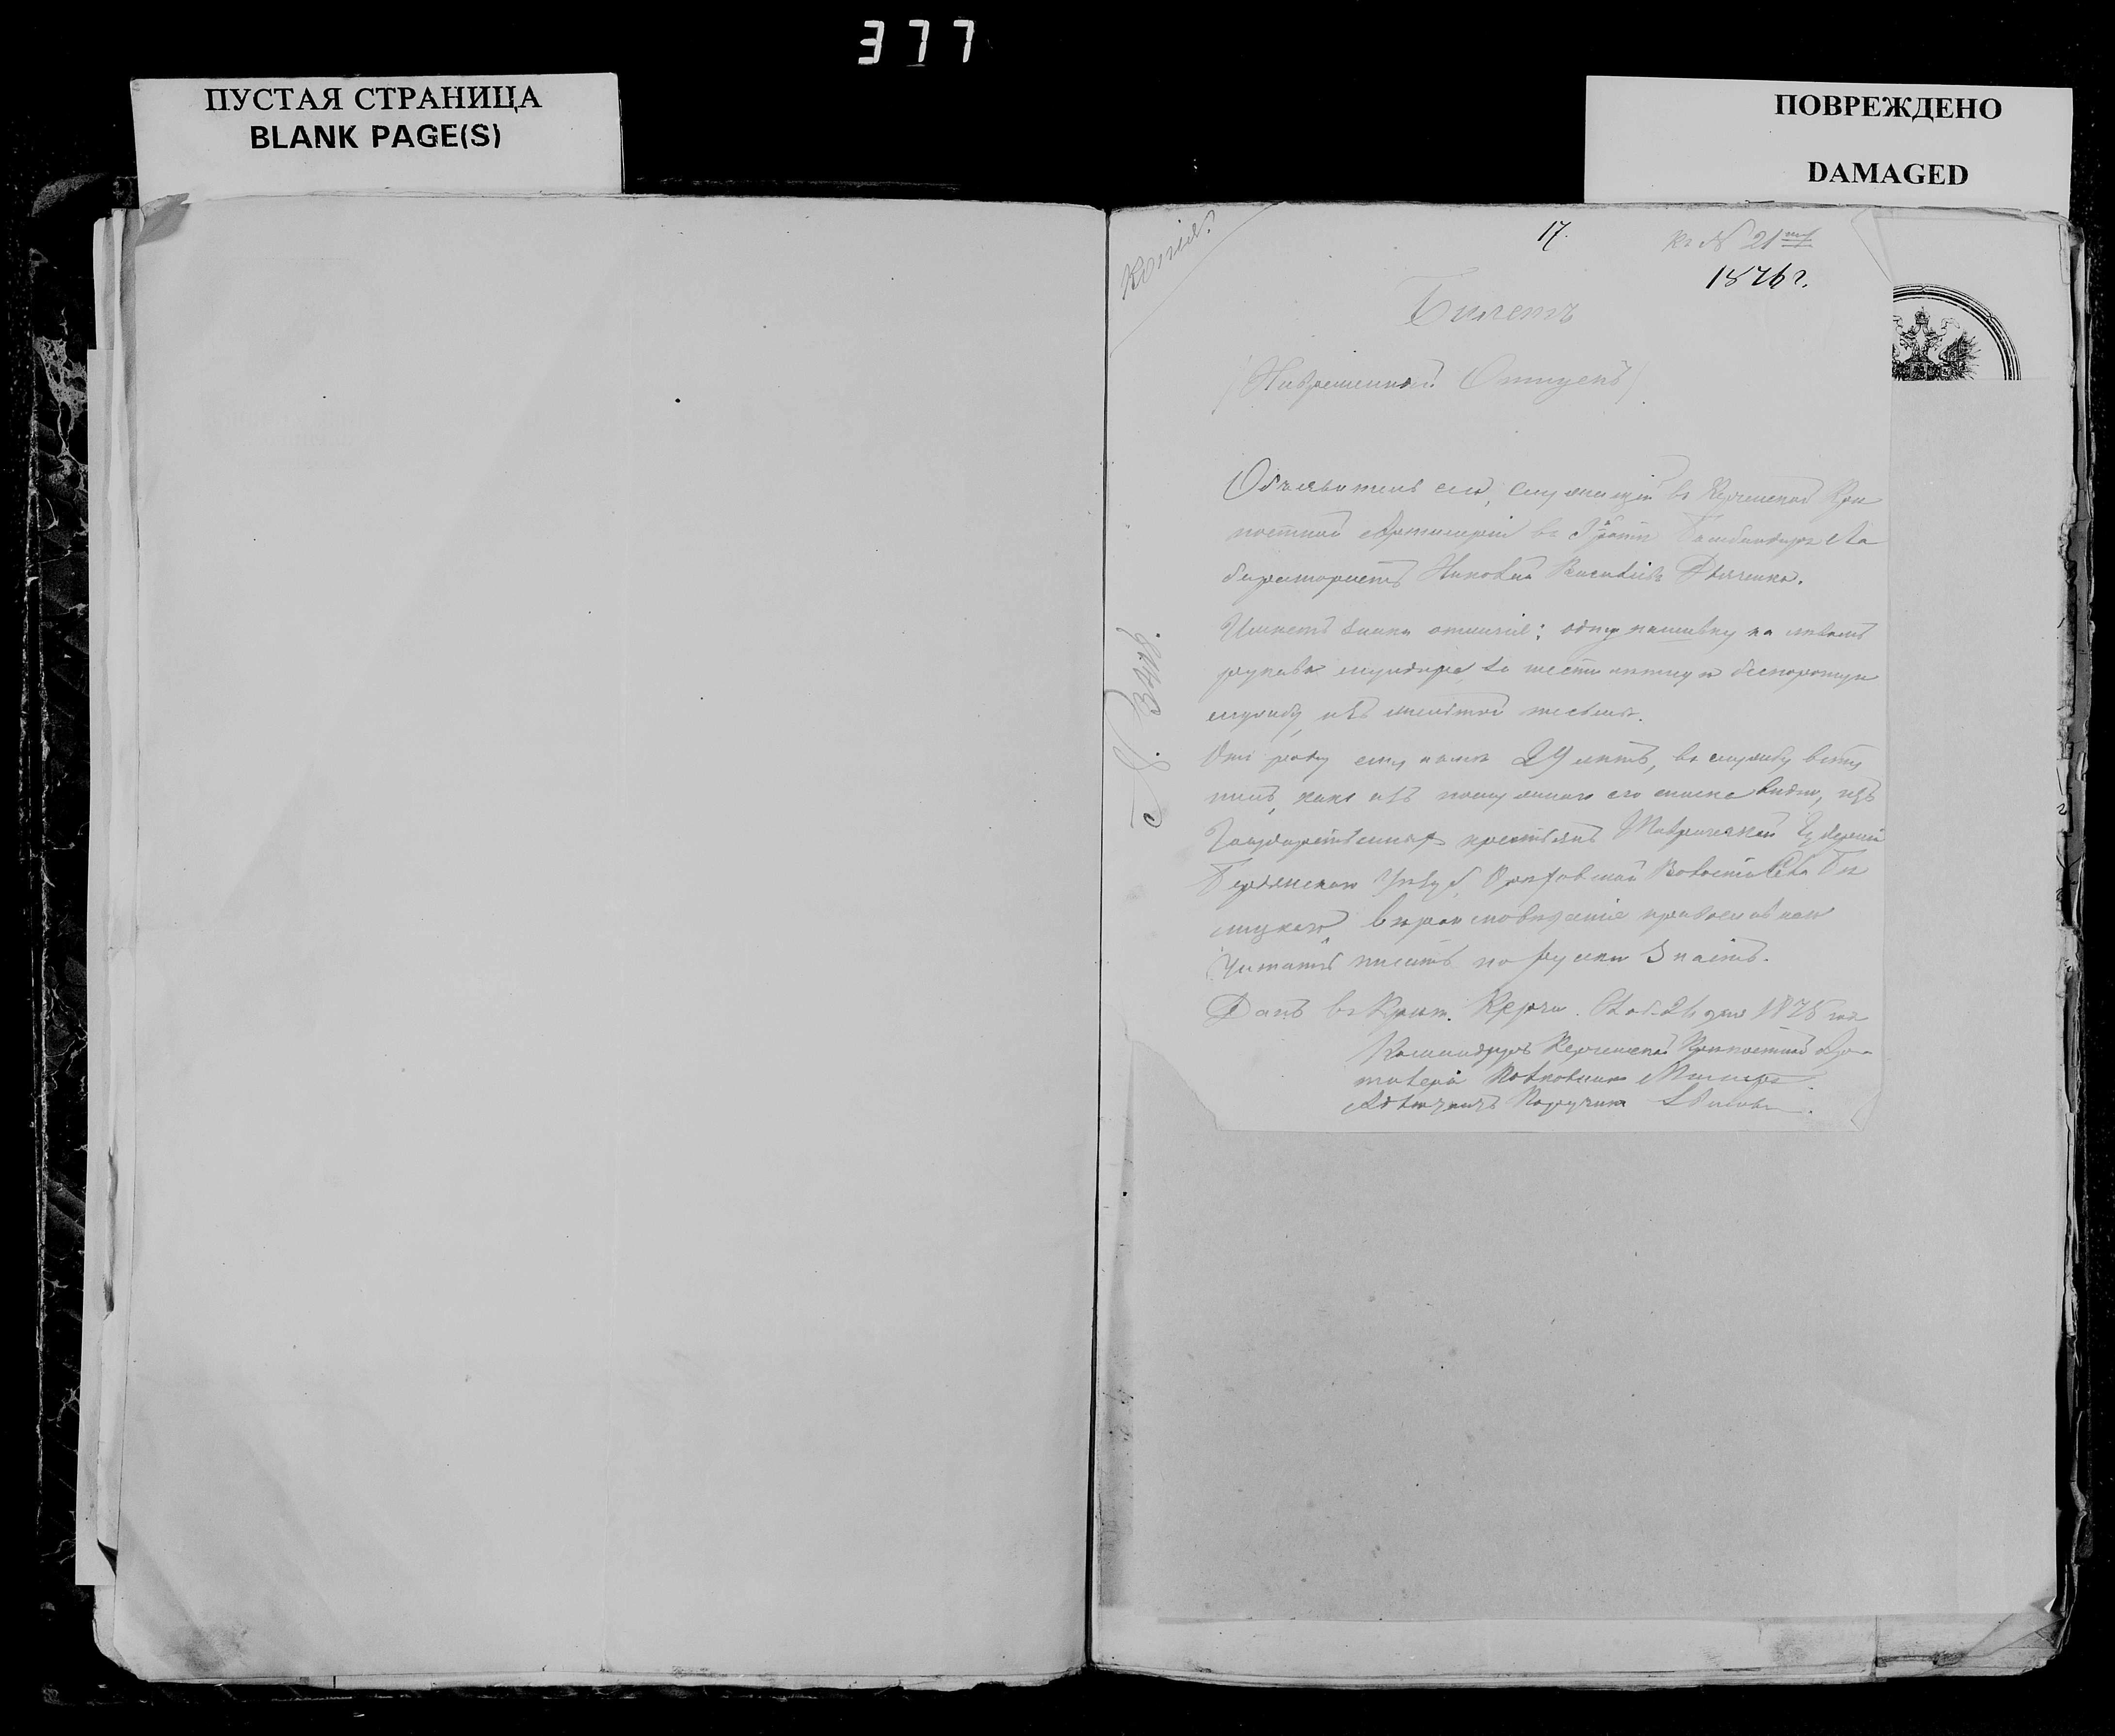 377
ПУСТАЯ СТРАНИЦА
BLANK PAGE(S)
ПОВРЕЖДЕНО
DAMAGED
Копія.
17.
Къ № 21
1876 г.
Билетъ
Отпускъ)
Объявитель сего, служащій въ Керченской Крѣ
постной Артиллеріи въ ротѣ Бомбандиръ Ла
боратористъ Васильевъ Дьяченко.
Имѣетъ знаки отличія: одну нашивку на лѣвомъ
рукавѣ мундира за шести лѣтнюю безпорочную
службу, изъ желтой тесьмы.
Отъ роду ему нынѣ 29 лѣтъ, въ службу всту
пилъ, какъ изъ послужнаго его списка видно, изъ
Государственныхъ крестьянъ Таврической Губерніи
Бердянскаго Уѣзда, Волости Села
вѣроисповѣданія православнаго
Читать писать по русски знаетъ.
Данъ въ Крѣп. Керчи. дня 1875 года
Командиръ Керченской Крѣпостной Ар
тилеріи Полковникъ
Адъютантъ Поручикъ